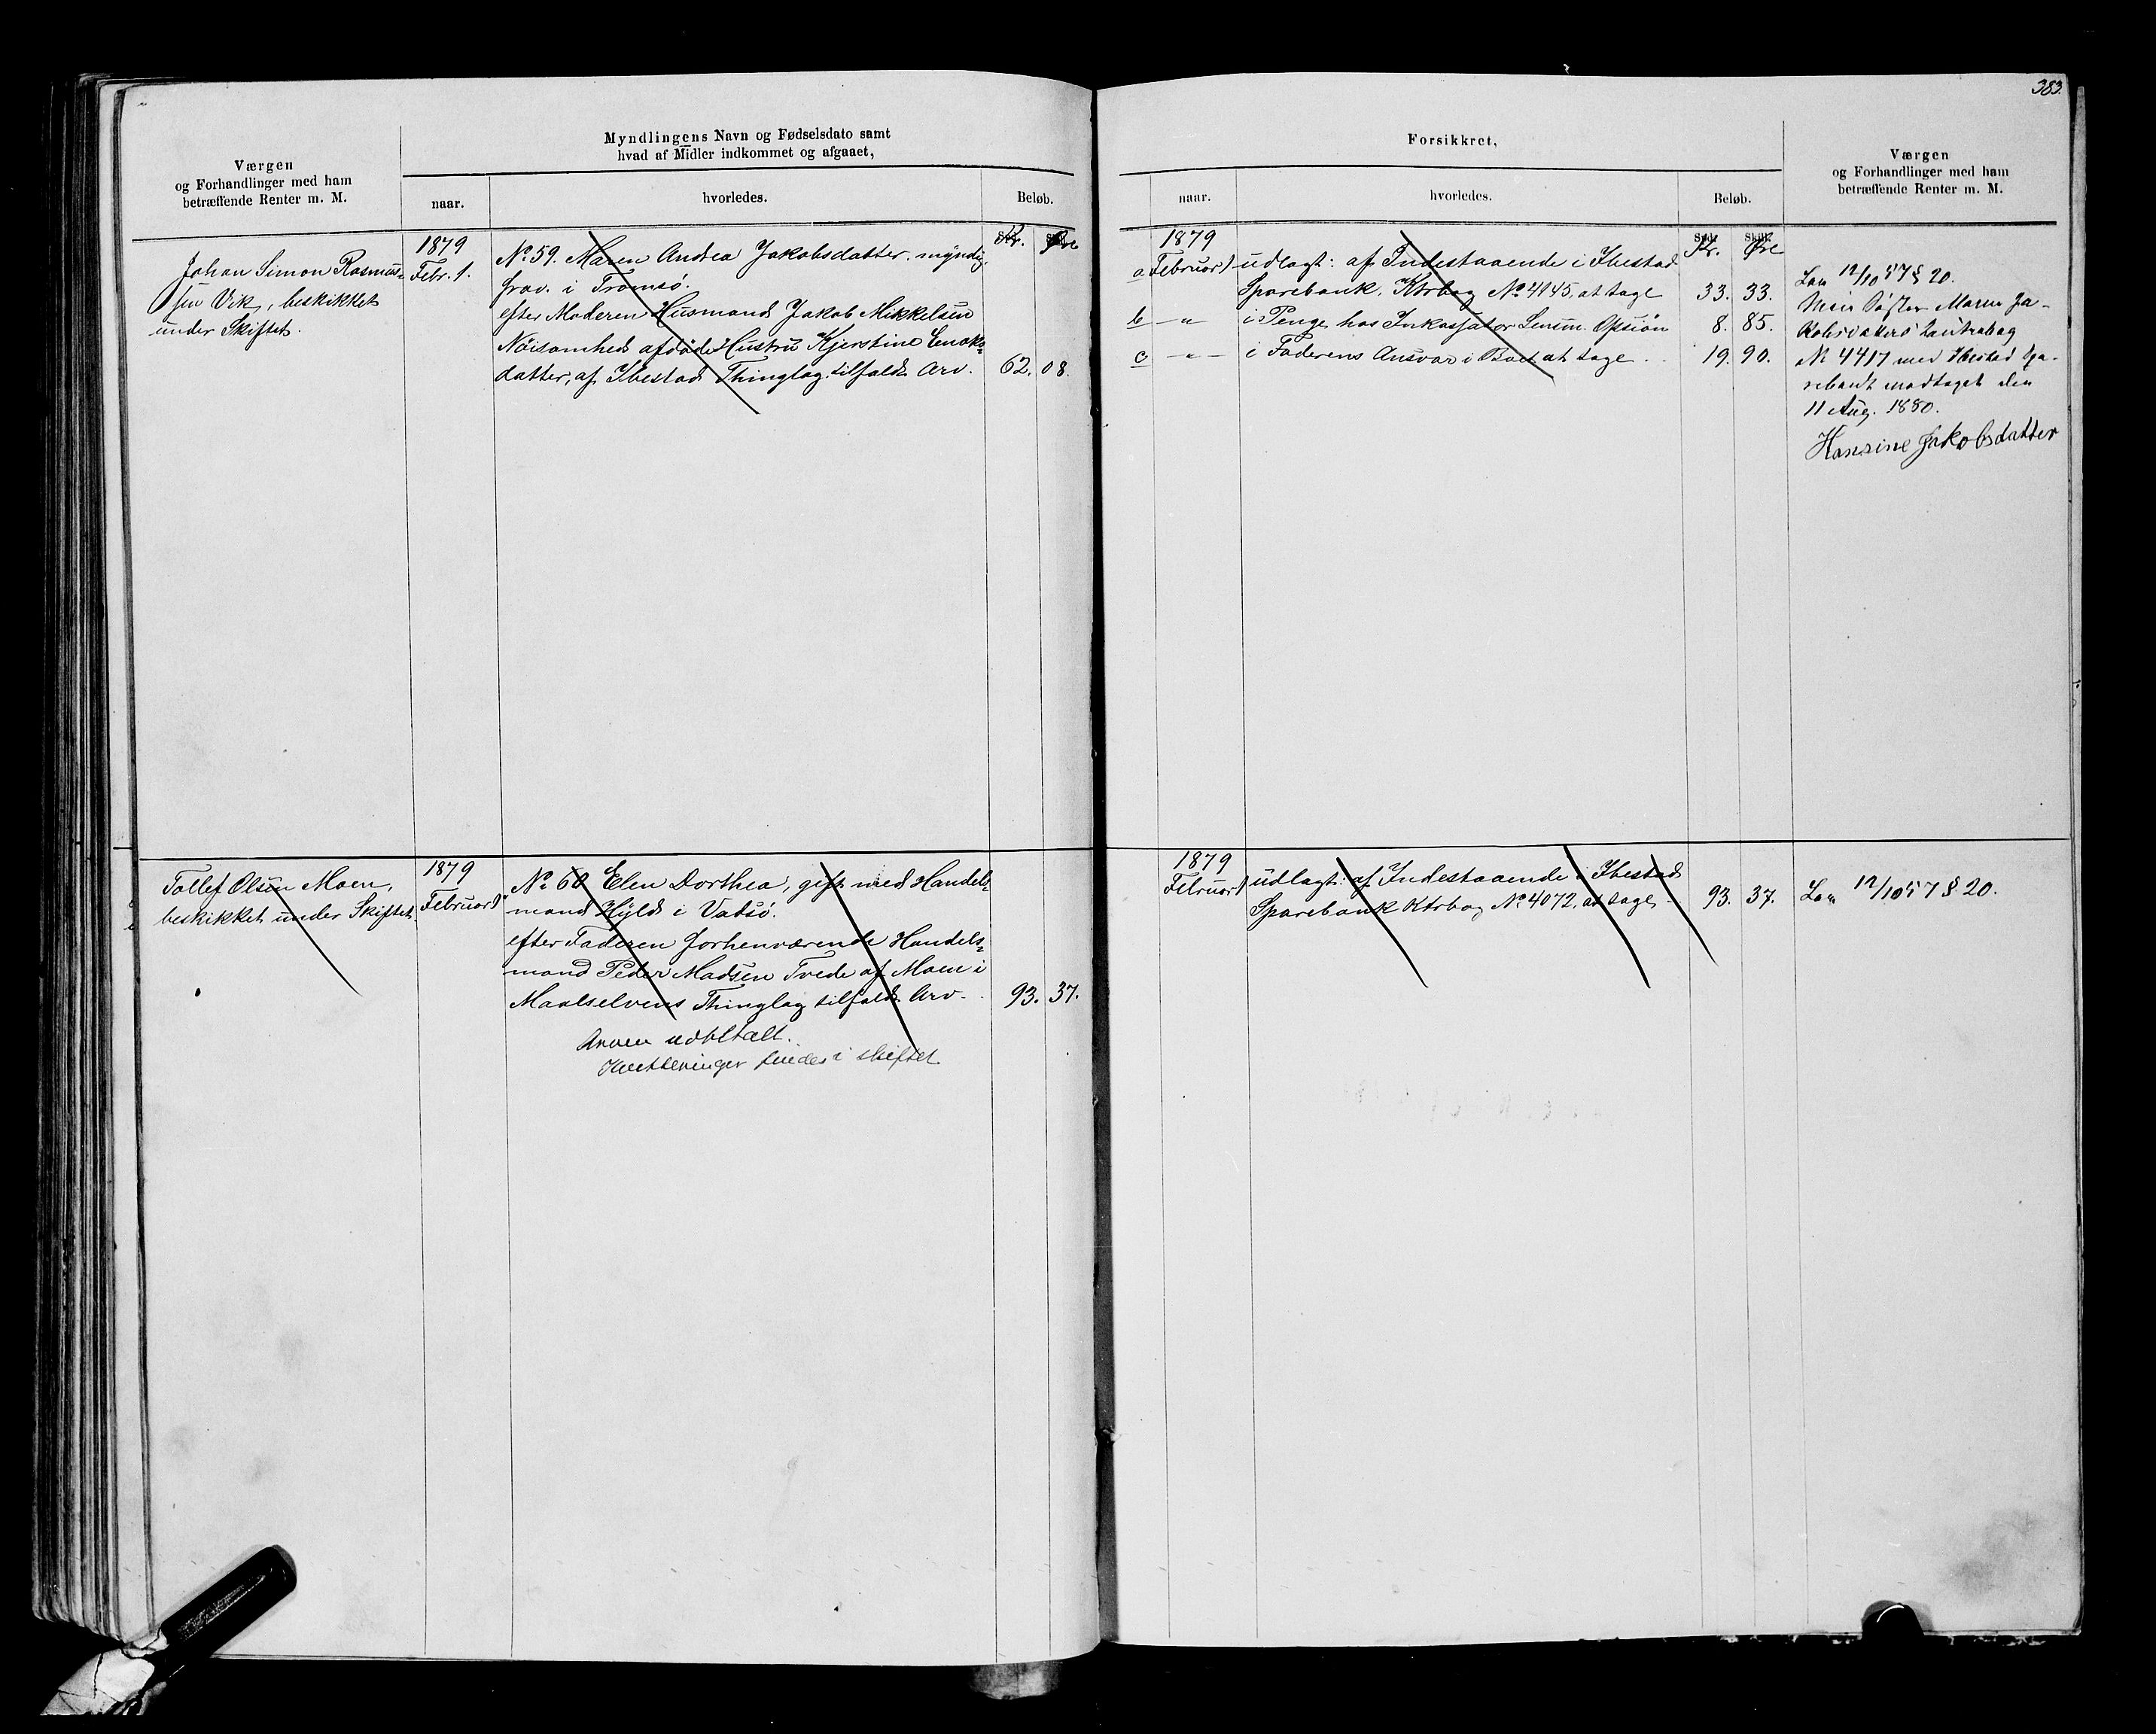 383.
Værgen
og Forhandlinger med ham
betræffende Renter m. M.
Myndlingens Navn og Fødselsdato samt
hvad af Midler indkommet og afgaaet,
naar.
hvorledes.
Beløb.
Kr. Øre
Johan Simon Rasmus-
sen Vik, beskikket
under Skiftet.
1879
Febr. 1.
No 59. Maren Andrea Jakobsdatter. myndig,
frav. i Tromsø.
efter Moderen Husmand Jakob Mikkelsen
Nöisomhed afdöde Hustru Kjerstine Enoks-
datter, af Ibestad Thinglag tilfaldt Arv. 62. 08.
Tollef Olsen Moen,
beskikket under Skiftet.
1879
Februar 1
No 60 Elen Dorthea, gift med Handels-
mand Hyld i Vadsø.
efter Faderen forhenværende Handels-
mand Peder Madsen Tvede af Moen i
Maalselvens Thinglag tilfaldt Arv. 93. 37.
Arven udbetalt.
Kvitteringer findes i skiftet
Forsikkret,
naar.
hvorledes.
Beløb.
Værgen
og Forhandlinger med ham
betræffende Renter m. M.
Kr. Øre
1879
a Februar 1 udlagt: af Indestaaende i Ibestad
Sparebank, Ktrbog No 4145, at tage 33. 33.
b — " — i Penge hos Inkassator Lensm. Opsiön 8. 85.
c — " — i Faderens Ansvar i Boet at tage 19. 90.
Lov 12/10 57 § 20.
Min Søster Maren Ja-
kobsdatters Contrabog
No 4417 med Ibestad Spa-
rebank modtaget den
11 Aug. 1880.
Hansine Jakobsdatter
1879
Februar 1 udlagt: af Indestaaende i Ibestad
Sparebank Ktrbog No 4072, at tage 93. 37.
Lov 12/10 57 § 20.